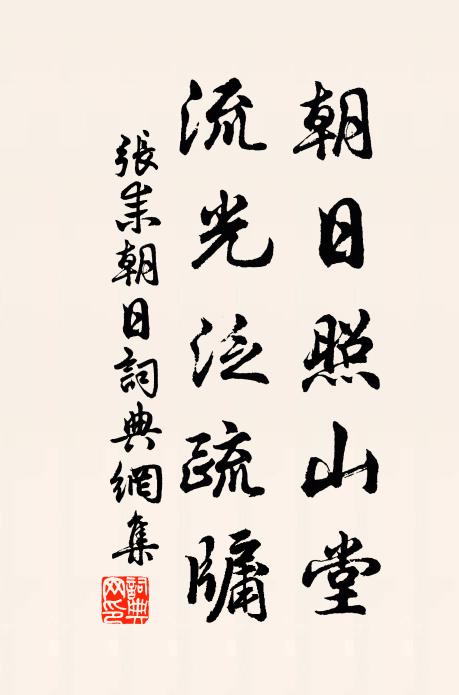 朝日照山堂
流光泛疏牖
張耒朝日詞典網集
詞典網印